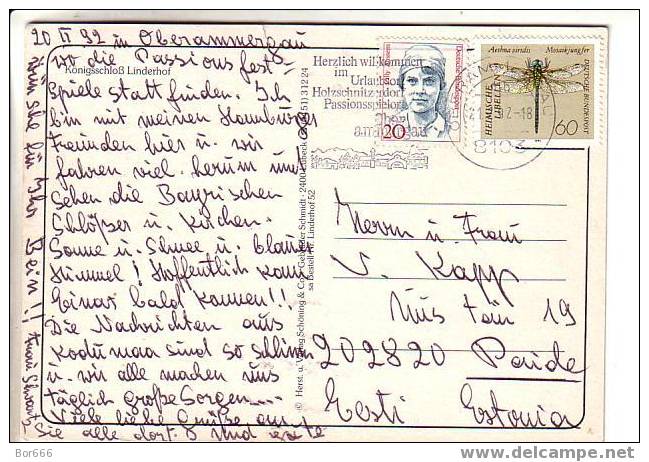 20 II 92 in Oberammergau
wo die Passionsfest-
Königsschloß Linderhof
spiele stattfinden. Ich
bin mit meinen Hamburger
Freunden hier u. wir
fahren viel herum und
sehen die Bayrischen
Schlößer u. Kirchen.
Sonne u. Schnee u. blauer
Himmel! Hoffentlich kann
Einar bald kommen!!
Die Nachrichten aus
kodumaa sind so schlimm
u. wir alle machen uns
täglich große Sorgen....
Viele liebe Grüße an
Sie alle dort. Und
für Ihr Bein!!
Herzlich willkommen
im
Urlaubsort
Holzschnitzerdorf
Passionsspielort
20
Deutsche Bundespost
Aeshna viridis Mosaikjungfer
HEIMISCHE
LIBELLEN
DEUTSCHE BUNDESPOST
60
8103
-18
© Herst. u. Verlag Schöning & Co + Gebrüder Schmidt · 2400 Lübeck
(0451) 31 22 4
Bestell-Nr. Linderhof 52
Herrn u. Frau
V. Kapp
Uus tän 19
202820 Paide
Eesti Estonia
Bor666
http://www.delcampe.net